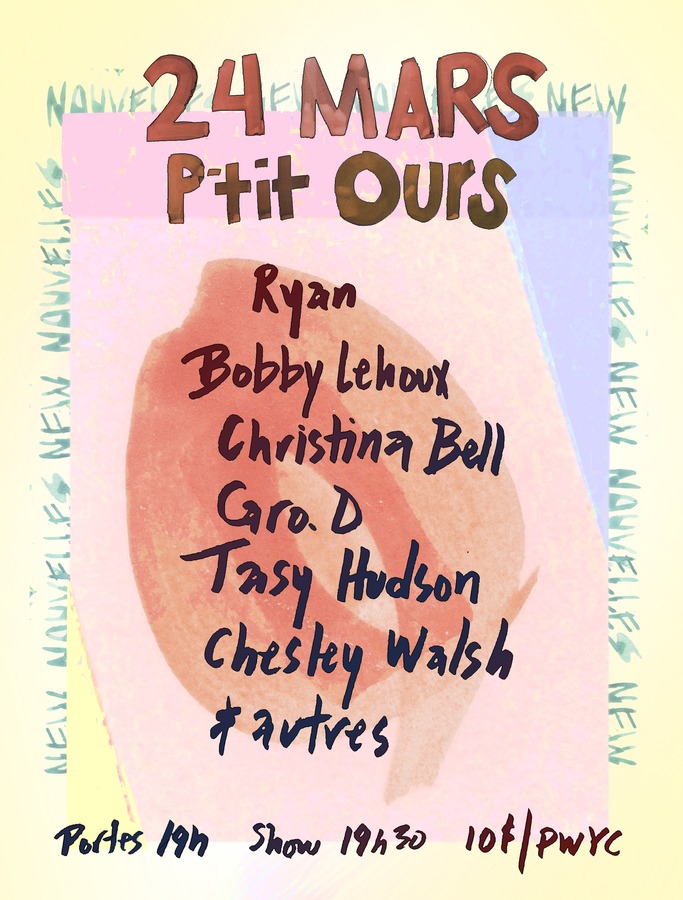 24 MARS
P-tit Ours
NOUVELLES NEW NOUVELLES NEW
NEW NOUVELLES NEW NOUVELLES
NOUVELLES NEW NOUVELLES NEW
Ryan
Bobby Lehoux
Christina Bell
Caro. D
Tasy Hudson
Chesley Walsh
& autres
Portes 19h Show 19h30 10$/PWYC